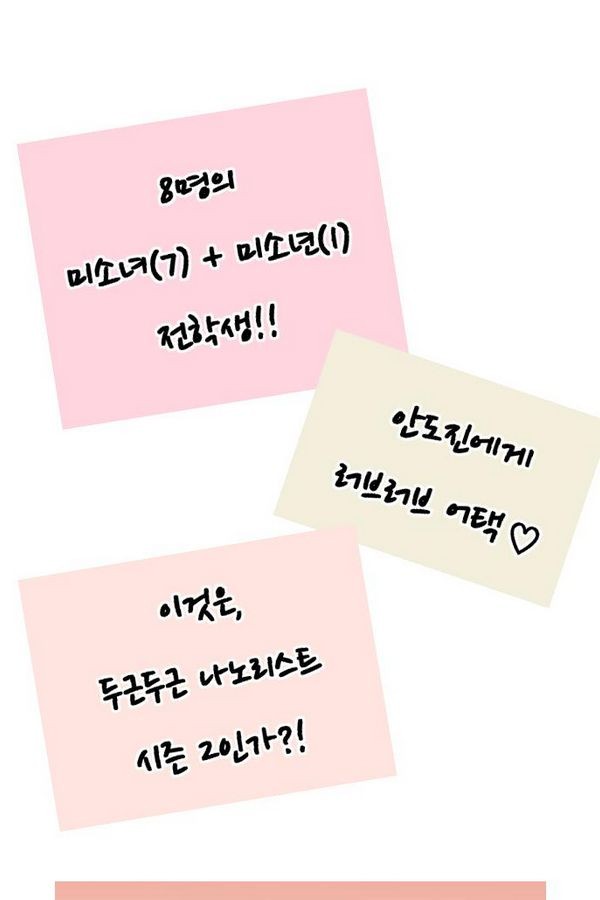 8명의
미소녀(7) + 미소년(1)
전학생!!
안도진에게
러브러브 어택♡
이것은,
두근두근 나노리스트
시즌 2인가?!